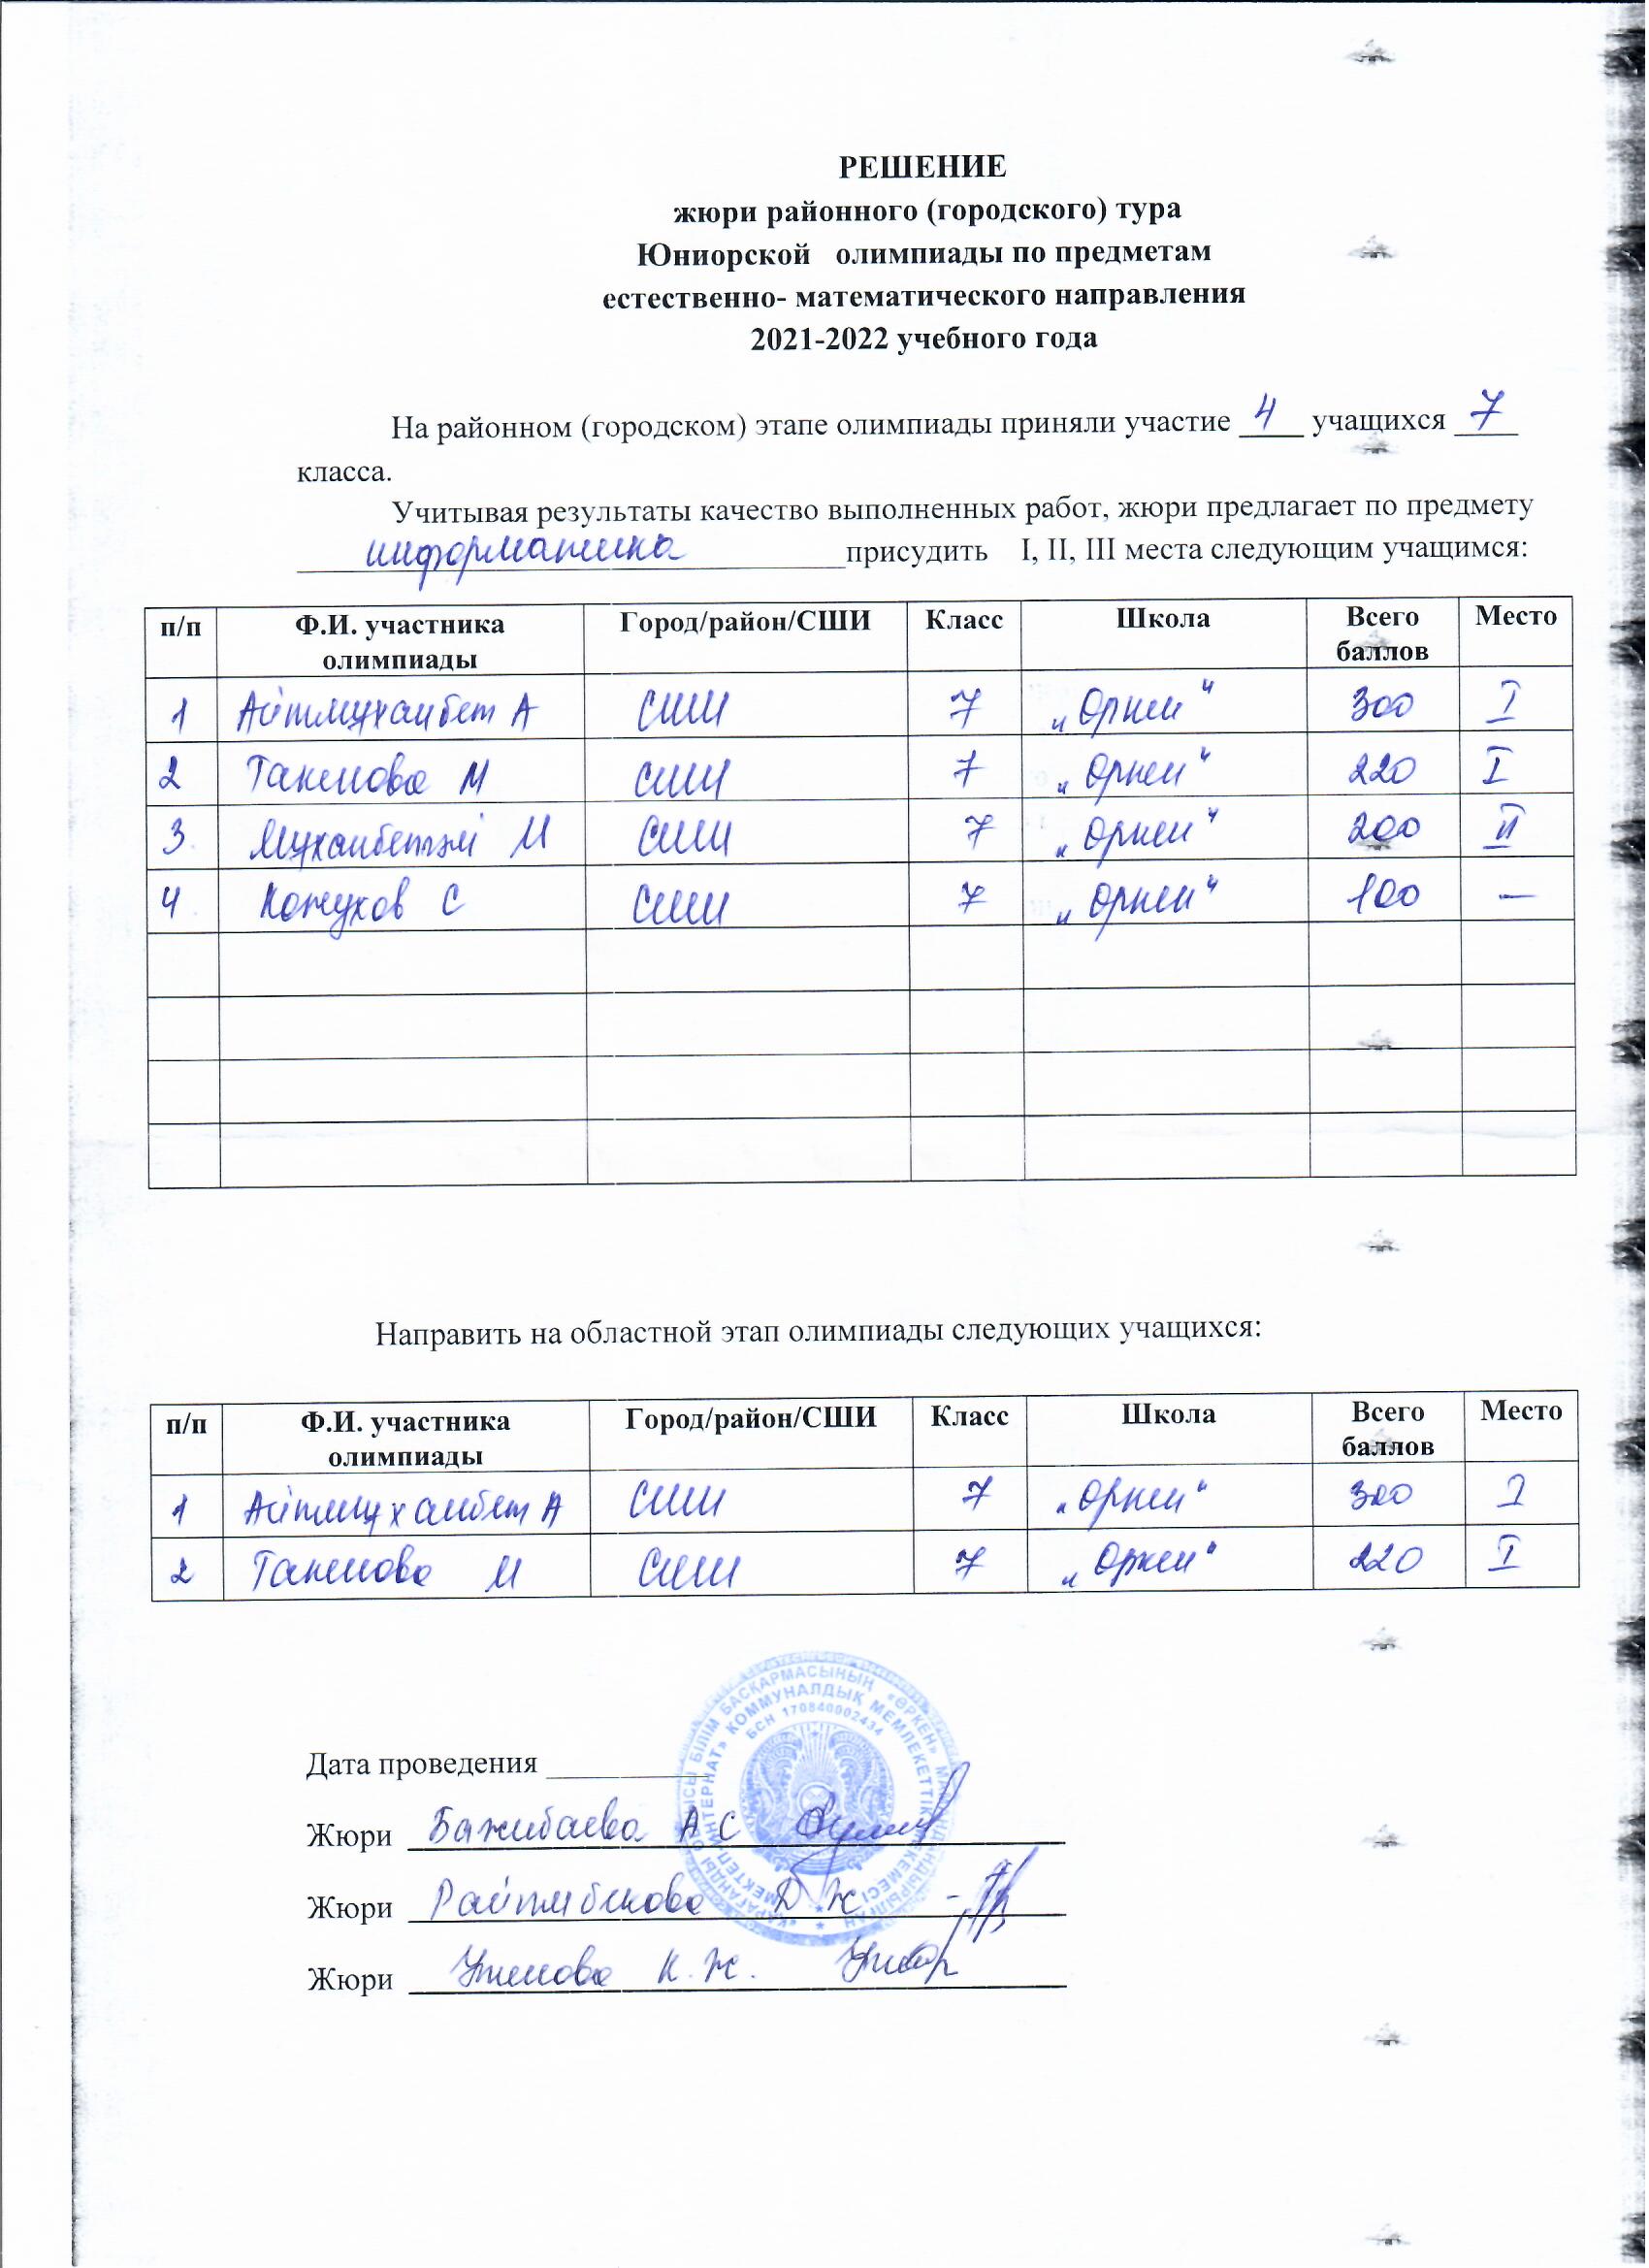 РЕШЕНИЕ
жюри районного (городского) тура
Юниорской олимпиады по предметам
естественно- математического направления
2021-2022 учебного года
На районном (городском) этапе олимпиады приняли участие 4 учащихся 7
класса.
Учитывая результаты качество выполненных работ, жюри предлагает по предмету
информатика присудить I, II, III места следующим учащимся:
п/п Ф.И. участника олимпиады Город/район/СШИ Класс Школа Всего баллов Место
1 Айтмухамбет А СШИ 7 „Оркен“ 300 I
2 Такенова М СШИ 7 „Оркен“ 220 I
3 М СШИ 7 „Оркен“ 200 II
4 Кожухов С СШИ 7 „Оркен“ 100 —
Направить на областной этап олимпиады следующих учащихся:
п/п Ф.И. участника олимпиады Город/район/СШИ Класс Школа Всего баллов Место
1 Айтмухамбет А СШИ 7 „Оркен“ 300 I
2 Такенова М СШИ 7 „Оркен“ 220 I
БІЛІМ БАСҚАРМАСЫНЫҢ «ӨРКЕН»
КОММУНАЛДЫҚ МЕМЛЕКЕТТІК МЕКЕМЕСІ
БСН 170840002434
Дата проведения
Жюри Бажибаева А С
Жюри Д Ж
Жюри К.Ж.